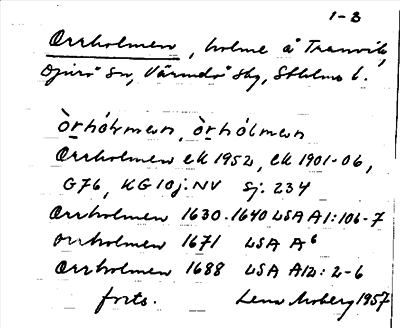 1-3
Orrholmen, holme å Tranvik,
Djurö sn, Värmdö skg, Sthlms l.
òrhólmen, òrhólmen
Orrholmen ek 1952, ek 1901-06,
G76, KG 10j.NV Sj. 234
Orrholmen 1630-1640 LSA A1:106-7
Orrholmen 1671 LSA A6
Orrholmen 1688 LSA A12:2-6
forts. Lena Moberg 1957